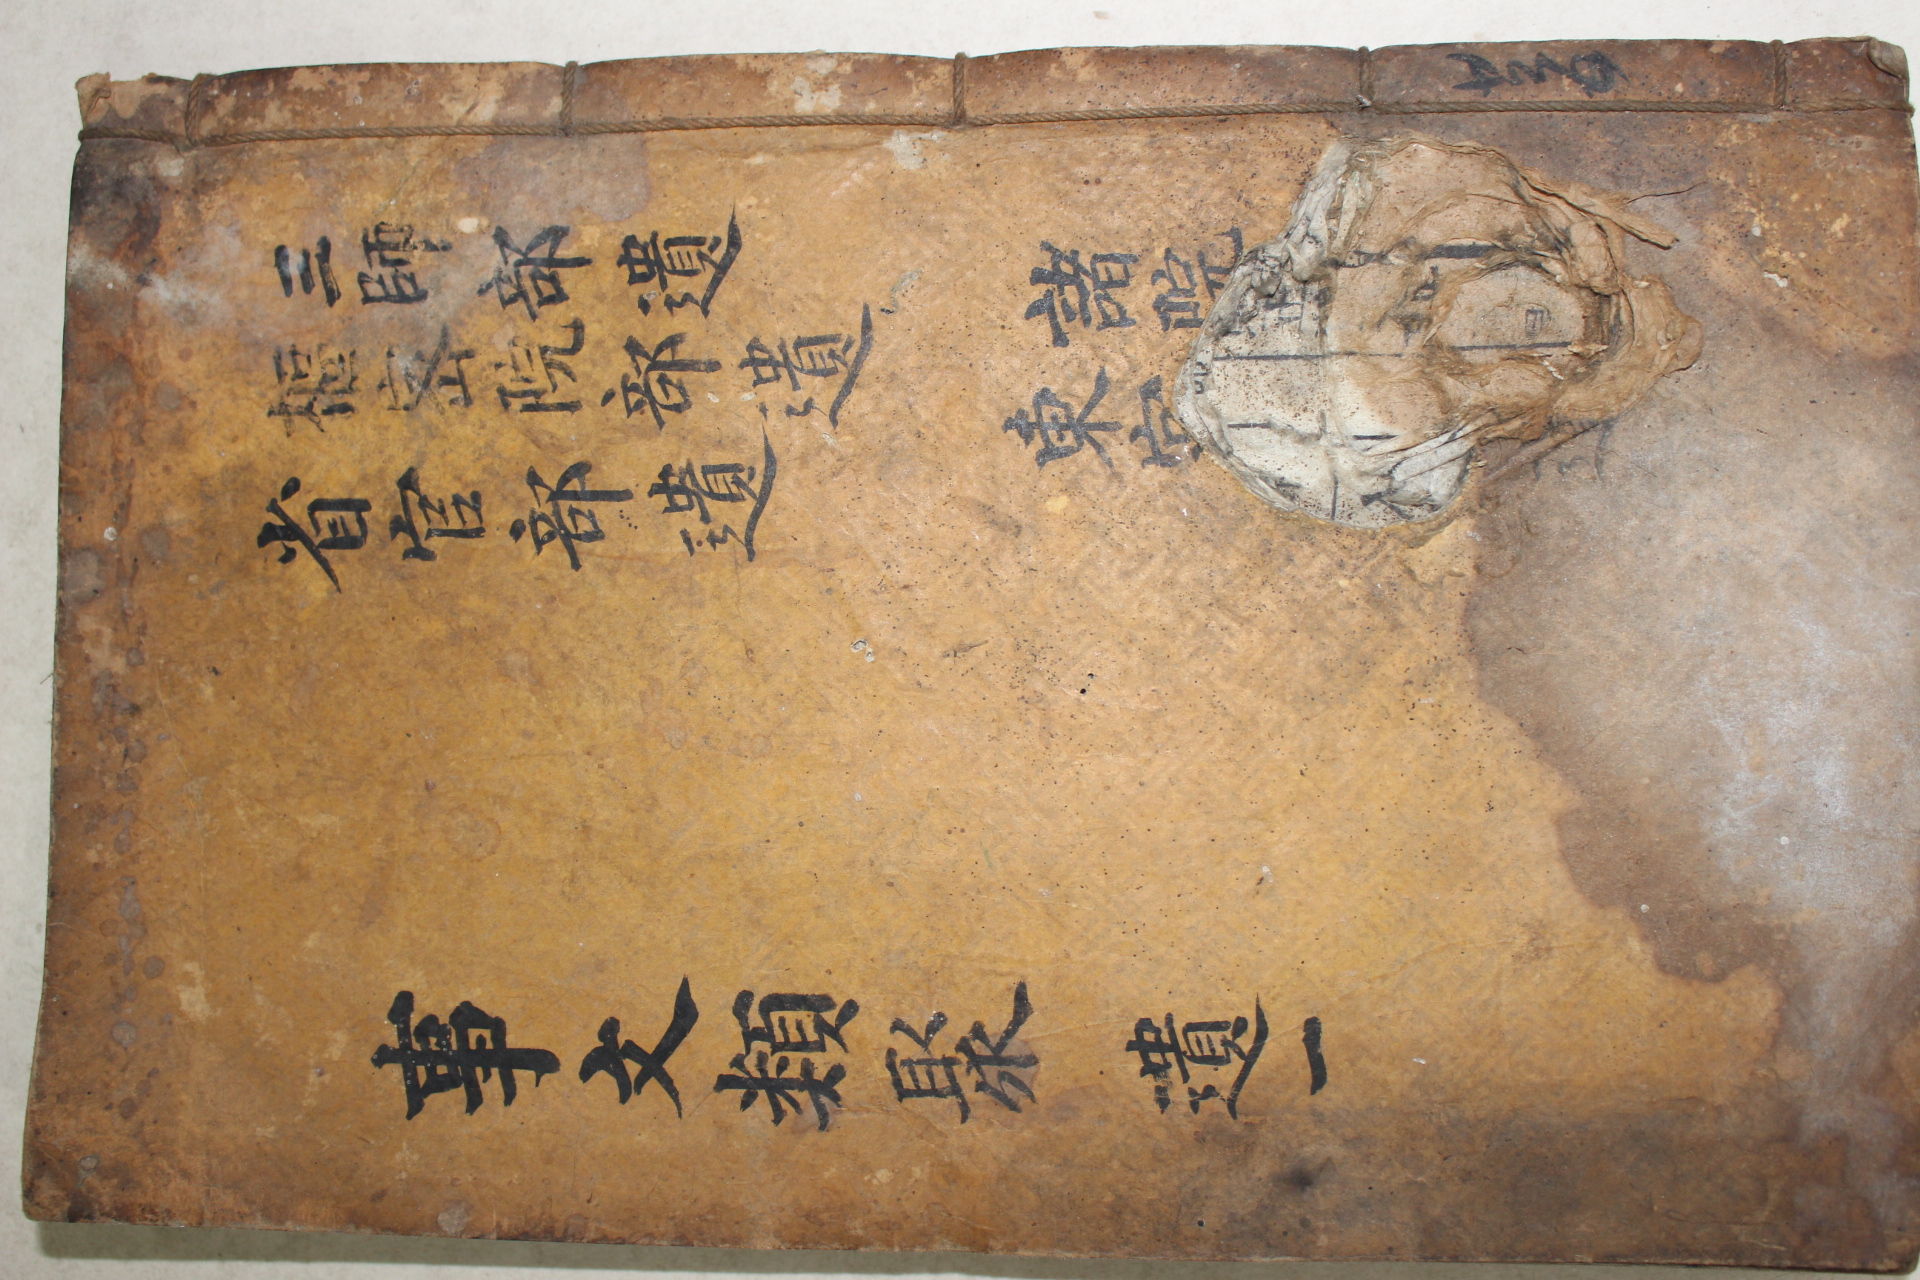 事文類聚 遺一
三師部遺
樞密院部遺
省官部遺
諸院
東宮